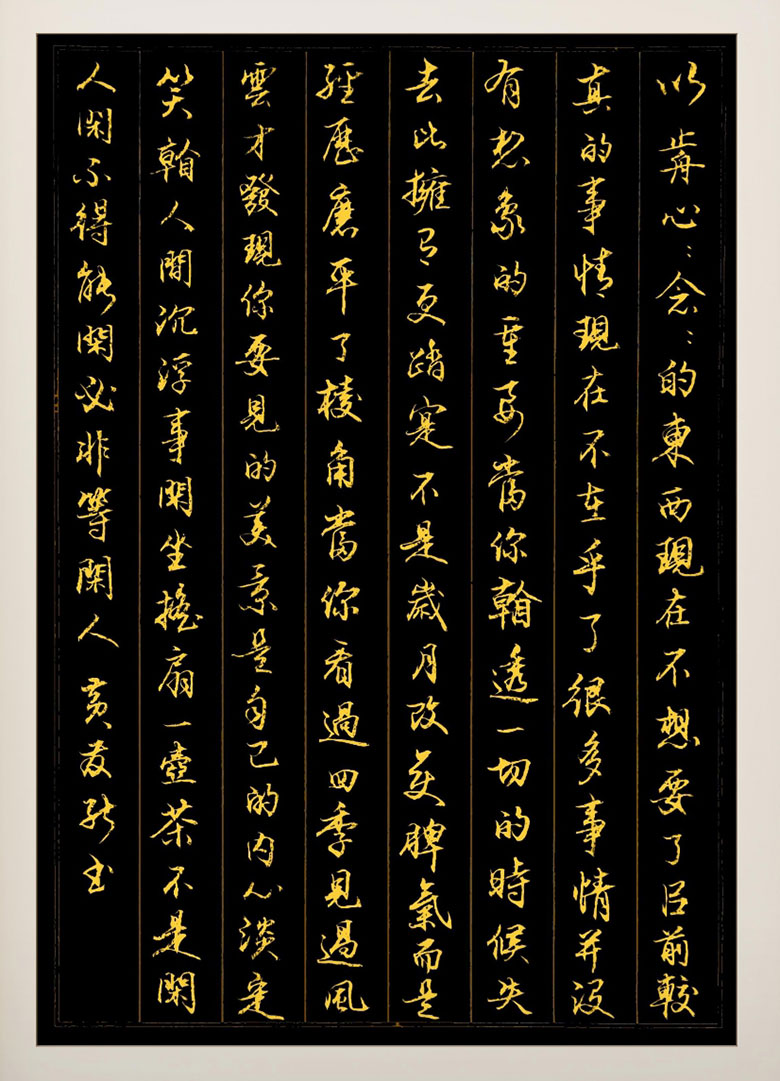 以歬心:念:的東西現在不想要了㠯前較
真的事情現在不在乎了很多事情并沒
有想象的重要當你看透一切的時候失
去比擁有更踏實不是歲月改變脾氣而是
經歷磨平了棱角當你看過四季見過風
雲才發現你要見的美景是自己的内心淡定
笑看人間沉浮事閑坐搖扇一壺茶不是閑
人閑不得能閑必非等閑人 黄能书